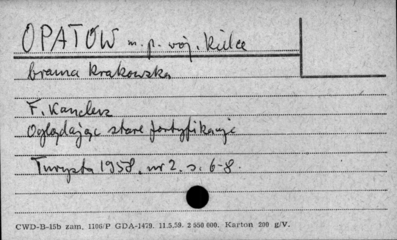 OPATÓW m. p. woj. Kielce
brama krakowska
F. Kanclerz
Oglądając stare fortyfikacje
Turysta 1958, nr 2. s. 6-8.
CWD-B-15b zam. 1106/P GDA-1479. 11.5.59. 2 550 000. Karton 200 g/V.